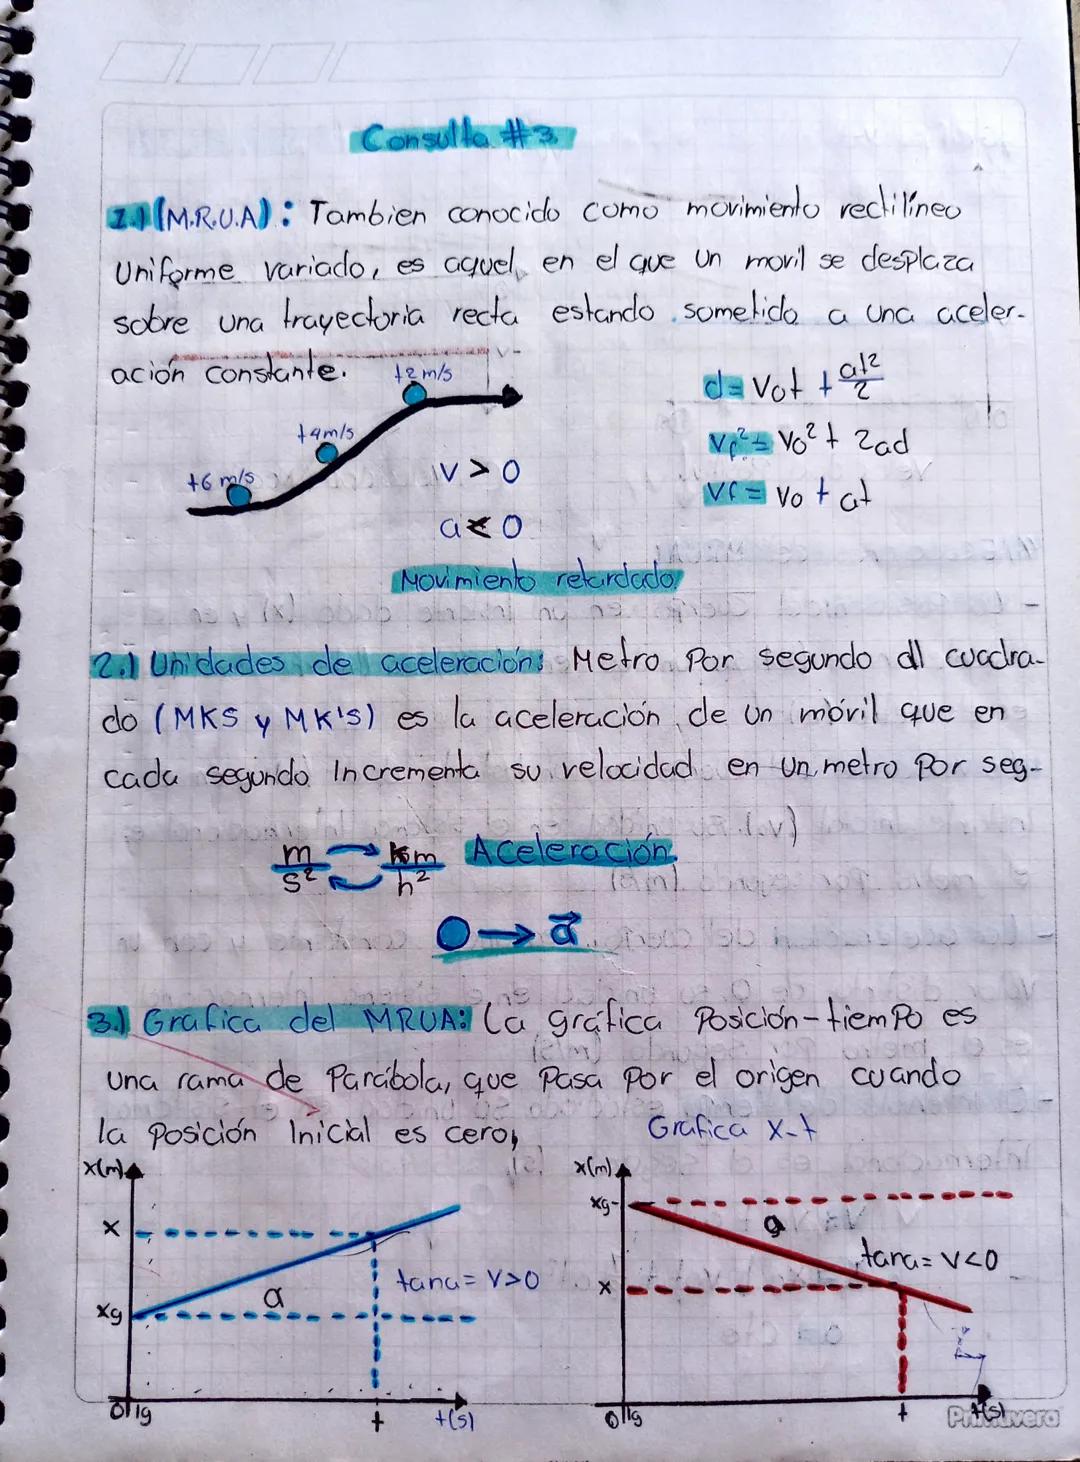 Consulta #3
1.) (M.R.U.A): Tambien conocido como movimiento rectilíneo
Uniforme variado, es aquel en el que un movil se desplaza
sobre una trayectoria recta estando sometido a una aceler-
ación constante.
+2 m/s
+4m/s
+6 m/s
v > 0
a < 0
d = Vot + at²/2
Vf² = Vo² + 2ad
Vf = Vo + at
Movimiento retardado
2.) Unidades de aceleración: Metro Por segundo al cuadra-
do (MKS y MK'S) es la aceleración de un móvil que en
cada segundo Incrementa su velocidad en un metro Por seg-
m/s² km/h² Aceleración
a⃗
3.) Grafica del MRUA: La gráfica Posición-tiempo es
una rama de Parábola, que Pasa Por el origen cuando
la Posición Inicial es cero,
Gráfica x-t
x(m)
x
xg
α
tanα = V>0
t
t(s)
x(m)
xg
x
α
tanα = V<0
t
t(s)
Primavera